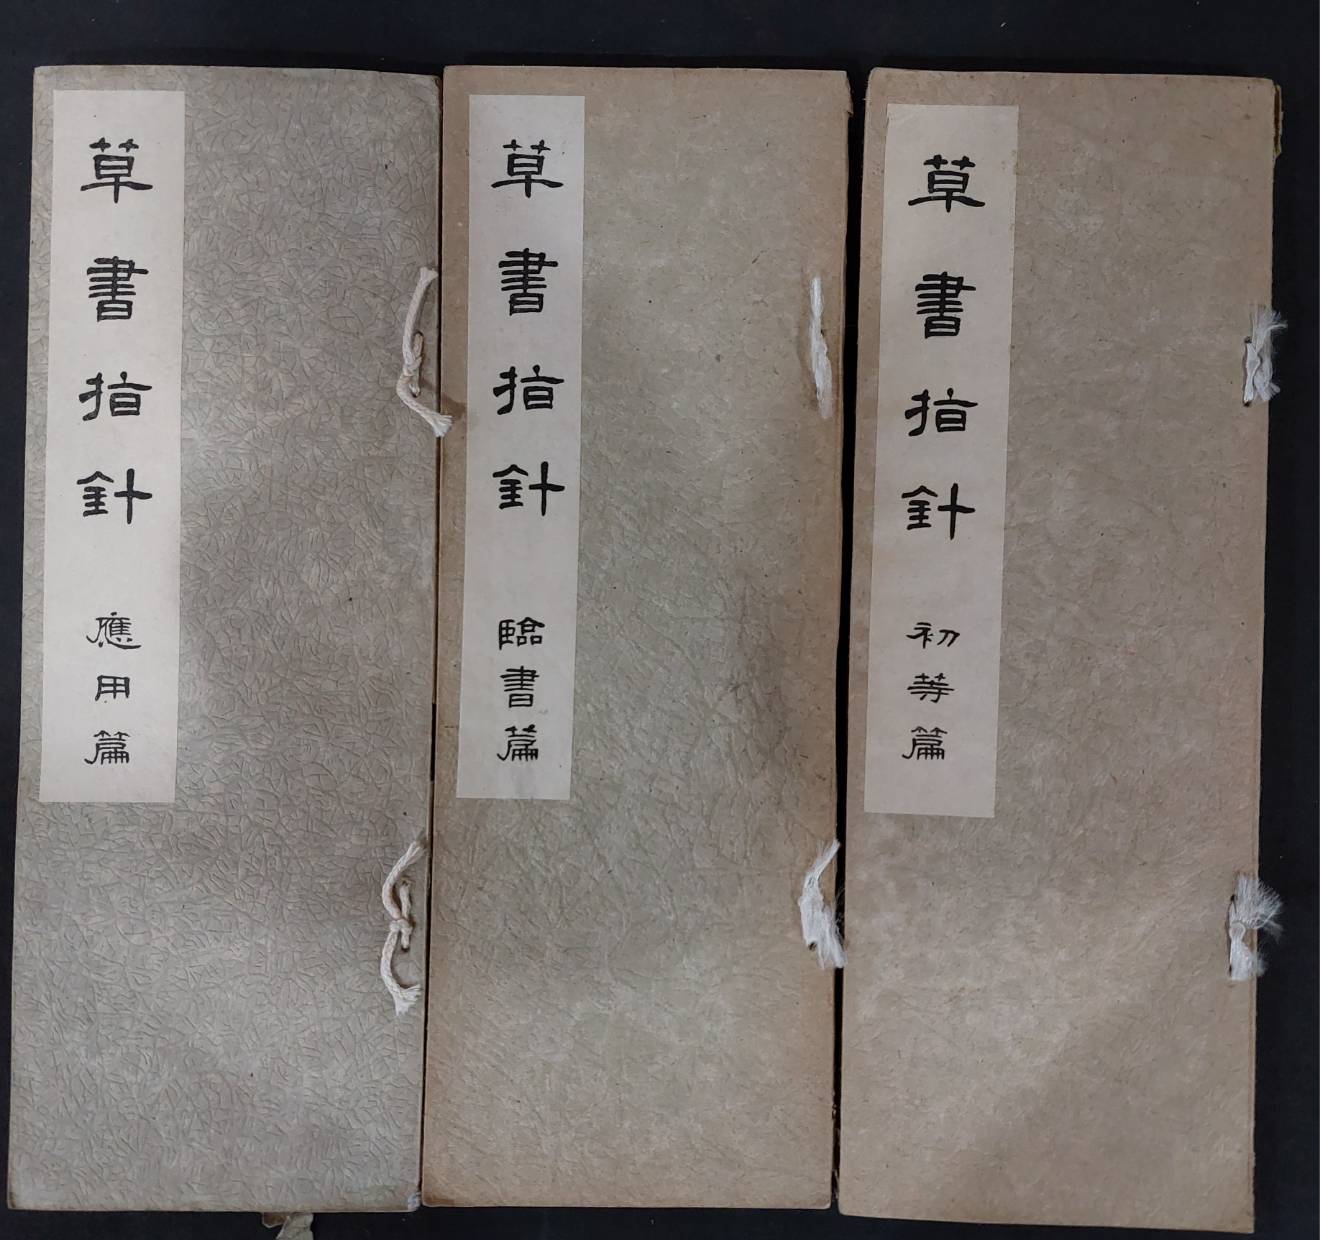 草書指針 初等篇
草書指針 臨書篇
草書指針 應用篇